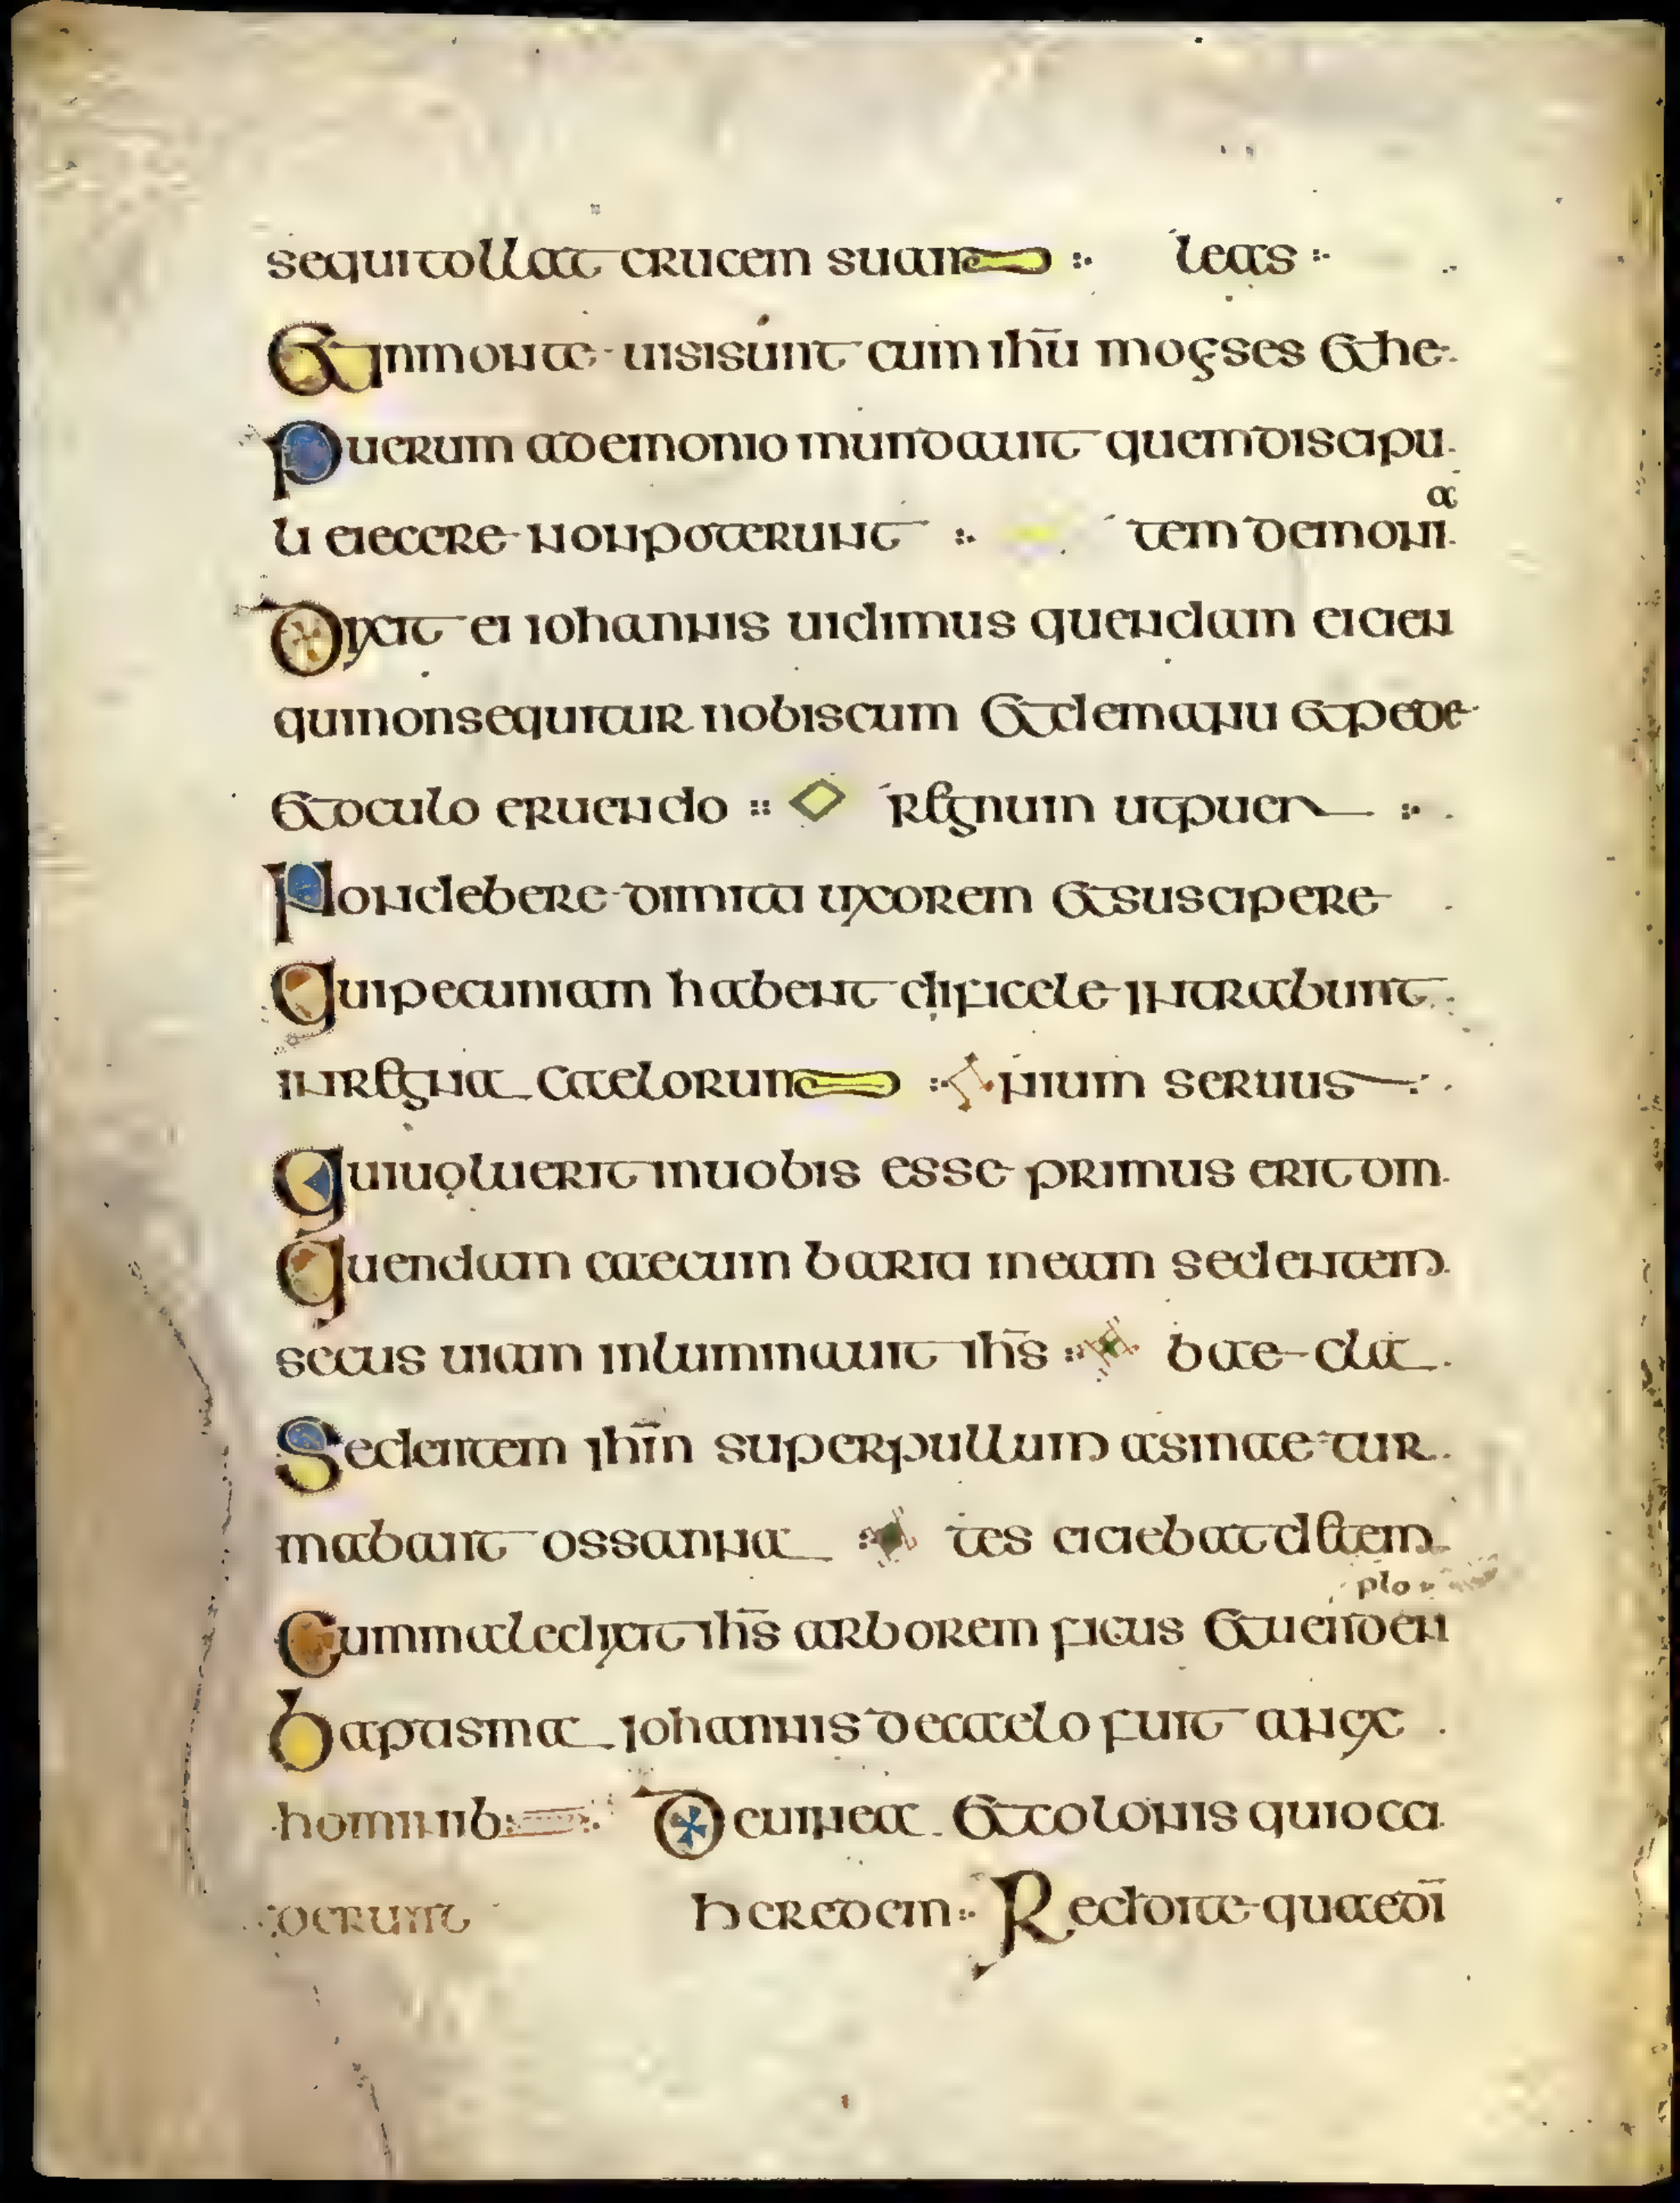 sequi tollat crucem suam :· leas :·
Et in monte uisi sunt cum ihu̅ moyses et he·
Puerum a demonio mundauit quem discipu·
li eiecere non poterunt :· tem demoni
a
Dixit ei iohannis uidimus quendam eicien
qui non sequitur nobiscum et de manu et pede
et oculo eruendo :: regnum ut puer :·
Non debere dimiti uxorem et suscipere
Qui pecuniam habent dificele intrabunt
in regna caelorum :· nium seruus :·
Qui uoluerit in uobis esse primus erit om·
Quendam caecum bartia meam sedentem
secus uiam inluminauit ihs̅ :· bae - clα
Sedentem ihm̅ super pullum asinae tur·
mabant ossanna :· tes eiciebat de tem
plo
Cum maledixit ihs̅ arborem ficus et uenden
Baptisma iohannis de caelo fuit an ex
hominib: Deuinea et colonis qui occi
derunt heredem :· Reddite quae di̅